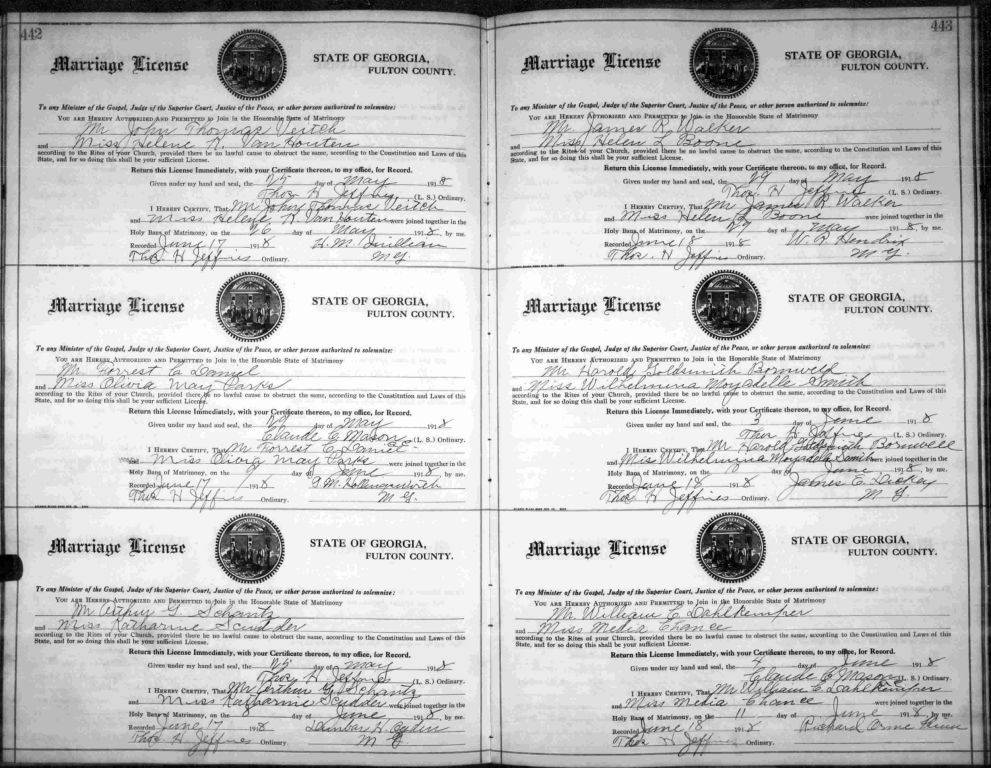 442
Marriage License
STATE OF GEORGIA,
FULTON COUNTY.
To any Minister of the Gospel, Judge of the Superior Court, Justice of the Peace, or other person authorized to solemnize:
YOU ARE HEREBY AUTHORIZED AND PERMITTED to Join in the Honorable State of Matrimony
Mr John Thomas Veitch
and Miss Helene H. Van Houten
according to the Rites of your Church, provided there be no lawful cause to obstruct the same, according to the Constitution and Laws of this
State, and for so doing this shall be your sufficient License.
Return this License Immediately, with your Certificate thereon, to my office, for Record.
Given under my hand and seal, the 25 day of May 1918
Thos. H. Jeffries (L. S.) Ordinary.
I HEREBY CERTIFY, That Mr John Thomas Veitch
and Miss Helene H. Van Houten were joined together in the
Holy Bans of Matrimony, on the 26 day of May 1918, by me.
Recorded June 17 1918 H. M. Quillian
Thos H Jeffries Ordinary. M G.
Marriage License
STATE OF GEORGIA,
FULTON COUNTY.
To any Minister of the Gospel, Judge of the Superior Court, Justice of the Peace, or other person authorized to solemnize:
YOU ARE HEREBY AUTHORIZED AND PERMITTED to Join in the Honorable State of Matrimony
Mr Forrest C Daniel
and Miss Olivia May Parks
according to the Rites of your Church, provided there be no lawful cause to obstruct the same, according to the Constitution and Laws of this
State, and for so doing this shall be your sufficient License.
Return this License Immediately, with your Certificate thereon, to my office, for Record.
Given under my hand and seal, the 29 day of May 1918
Claude C Mason (L. S.) Ordinary.
I HEREBY CERTIFY, That Mr Forrest C Daniel
and Miss Olivia May Parks were joined together in the
Holy Bans of Matrimony, on the day of June 1918, by me.
Recorded June 17 1918 Hollingsworth
Thos H Jeffries Ordinary. M G
Marriage License
STATE OF GEORGIA,
FULTON COUNTY.
To any Minister of the Gospel, Judge of the Superior Court, Justice of the Peace, or other person authorized to solemnize:
YOU ARE HEREBY AUTHORIZED AND PERMITTED to Join in the Honorable State of Matrimony
Mr Arthur G. Schantz
and Miss Katharine Scudder
according to the Rites of your Church, provided there be no lawful cause to obstruct the same, according to the Constitution and Laws of this
State, and for so doing this shall be your sufficient License.
Return this License Immediately, with your Certificate thereon, to my office, for Record.
Given under my hand and seal, the 25 day of May 1918
Thos H Jeffries (L. S.) Ordinary.
I HEREBY CERTIFY, That Mr Arthur G. Schantz
and Miss Katharine Scudder were joined together in the
Holy Bans of Matrimony, on the 8 day of June 1918, by me.
Recorded June 17 1918 Dunbar H. Ogden
Thos H Jeffries Ordinary. M G
443
Marriage License
STATE OF GEORGIA,
FULTON COUNTY.
To any Minister of the Gospel, Judge of the Superior Court, Justice of the Peace, or other person authorized to solemnize:
YOU ARE HEREBY AUTHORIZED AND PERMITTED to Join in the Honorable State of Matrimony
Mr James R Walker
and Miss Helen L Boone
according to the Rites of your Church, provided there be no lawful cause to obstruct the same, according to the Constitution and Laws of this
State, and for so doing this shall be your sufficient License.
Return this License Immediately, with your Certificate thereon, to my office, for Record.
Given under my hand and seal, the 29 day of May 1918
Thos. H Jeffries (L. S.) Ordinary.
I HEREBY CERTIFY, That Mr James R Walker
and Miss Helen L Boone were joined together in the
Holy Bans of Matrimony, on the 29 day of May 1918, by me.
Recorded June 18 1918 W. R. Hendrix
Thos. H Jeffries Ordinary. M G.
Marriage License
STATE OF GEORGIA,
FULTON COUNTY.
To any Minister of the Gospel, Judge of the Superior Court, Justice of the Peace, or other person authorized to solemnize:
YOU ARE HEREBY AUTHORIZED AND PERMITTED to Join in the Honorable State of Matrimony
Mr Harold Goldsmith
and Miss Wilhelmina Moyadelle Smith
according to the Rites of your Church, provided there be no lawful cause to obstruct the same, according to the Constitution and Laws of this
State, and for so doing this shall be your sufficient License.
Return this License Immediately, with your Certificate thereon, to my office, for Record.
Given under my hand and seal, the 3 day of June 1918
Thos H Jeffries (L. S.) Ordinary.
I HEREBY CERTIFY, That Mr Harold Goldsmith
and Miss Wilhelmina Moyadelle Smith were joined together in the
Holy Bans of Matrimony, on the day of June 1918, by me.
Recorded June 18 1918 James E. Dickey
Thos H Jeffries Ordinary. M G
Marriage License
STATE OF GEORGIA,
FULTON COUNTY.
To any Minister of the Gospel, Judge of the Superior Court, Justice of the Peace, or other person authorized to solemnize:
YOU ARE HEREBY AUTHORIZED AND PERMITTED to Join in the Honorable State of Matrimony
Mr William E Dahlkemper
and Miss Media Chance
according to the Rites of your Church, provided there be no lawful cause to obstruct the same, according to the Constitution and Laws of this
State, and for so doing this shall be your sufficient License.
Return this License Immediately, with your Certificate thereon, to my office, for Record.
Given under my hand and seal, the 4 day of June 1918
Claude C Mason (L. S.) Ordinary.
I HEREBY CERTIFY, That Mr William E Dahlkemper
and Miss Media Chance were joined together in the
Holy Bans of Matrimony, on the 11 day of June 1918, by me.
Recorded June 18 1918 Richard Orme Flinn
Thos H Jeffries Ordinary.